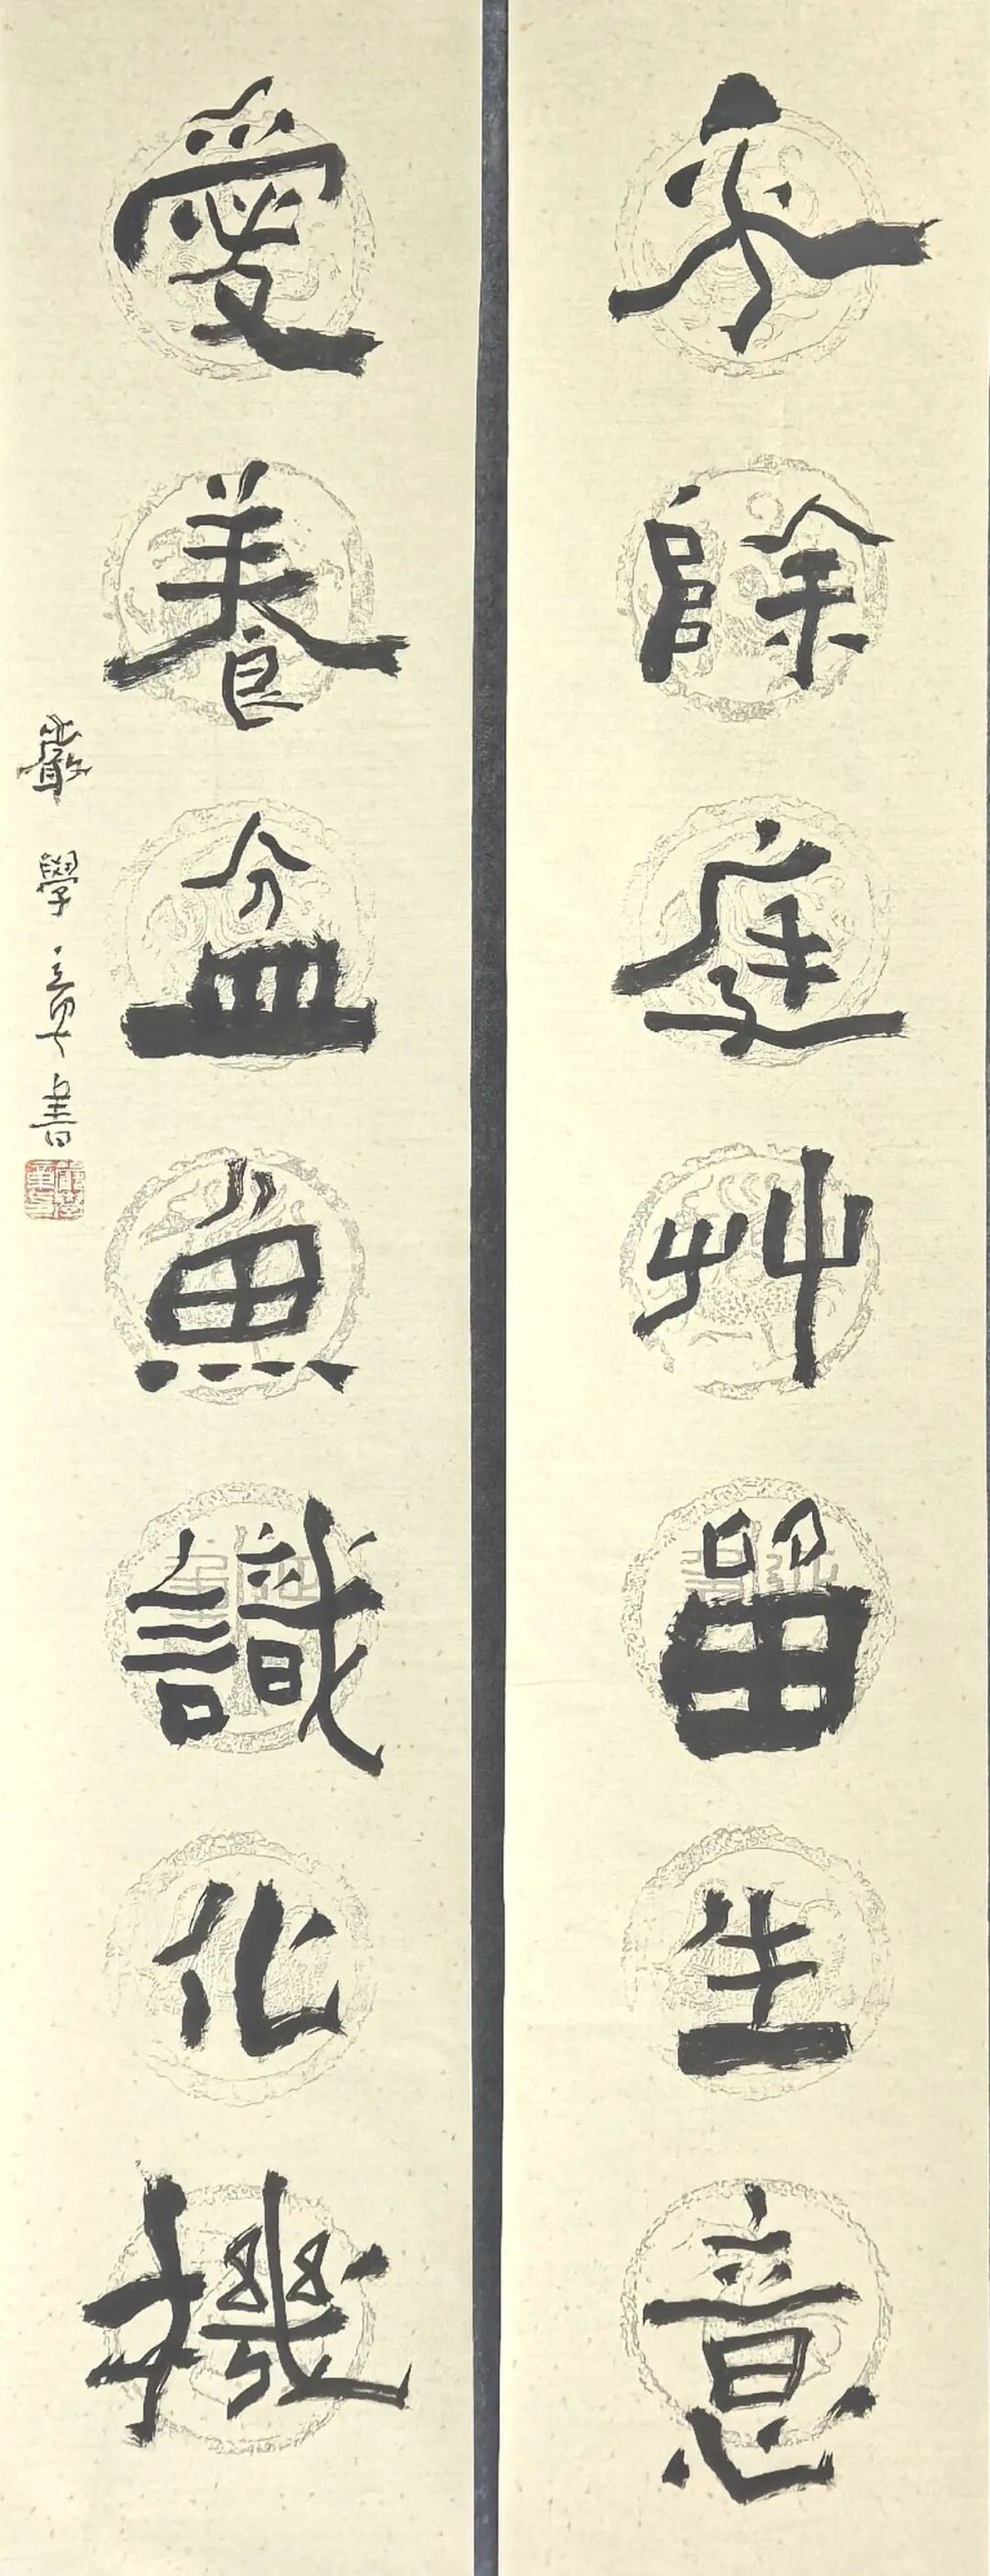 不除庭艸留生意
愛養盆魚識化機
嚴學章書